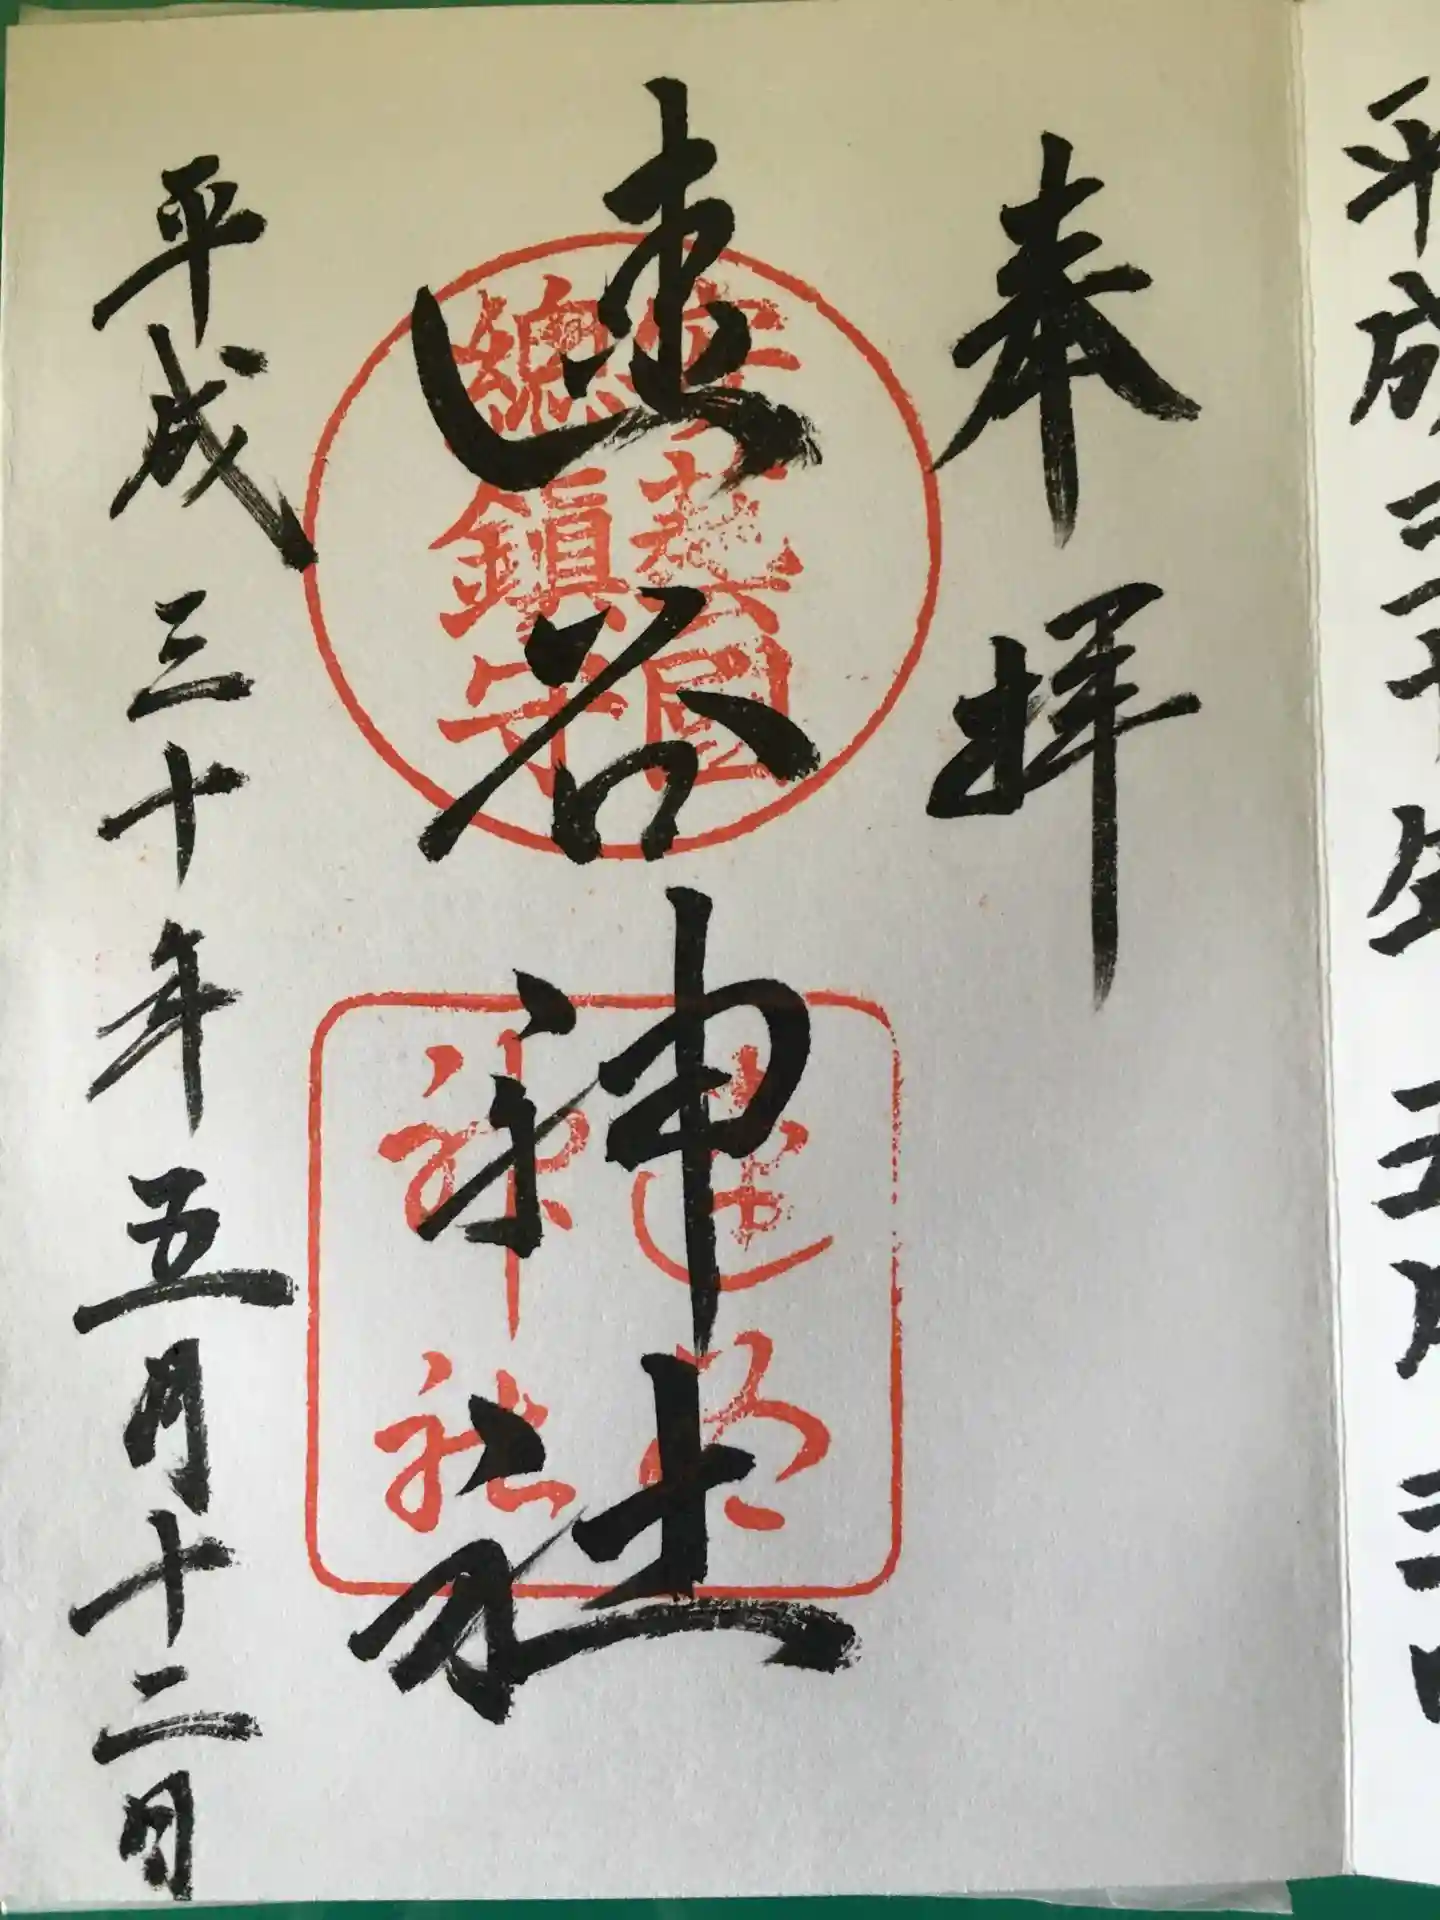 平成三十年五月三日
奉拝
速谷神社
安芸國
總鎮守
速谷
神社
平成三十年五月十二日